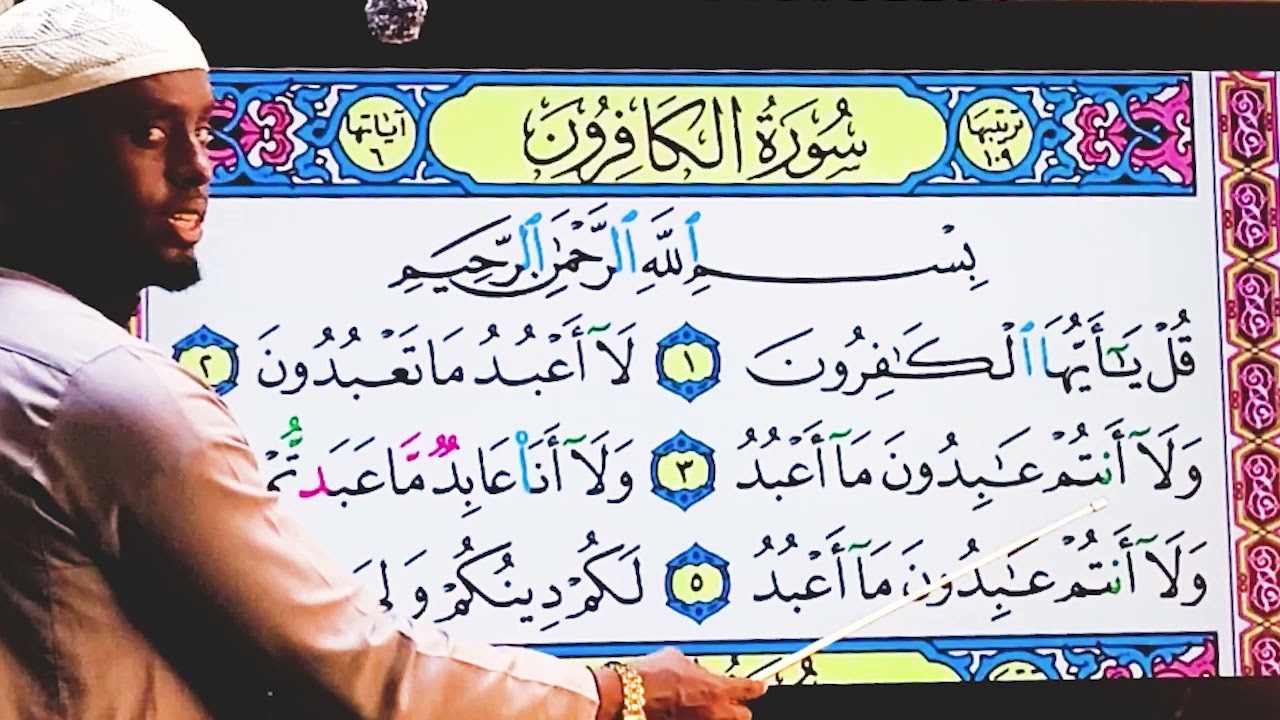 ترتيبها ١٠٩ سُورَةُ الكَافِرُونَ آياتها ٦
بِسْمِ ٱللَّهِ ٱلرَّحْمَٰنِ ٱلرَّحِيمِ
قُلْ يَٰٓأَيُّهَا ٱلْكَٰفِرُونَ ١ لَآ أَعْبُدُ مَا تَعْبُدُونَ ٢
وَلَآ أَنتُمْ عَٰبِدُونَ مَآ أَعْبُدُ ٣ وَلَآ أَنَا۠ عَابِدٌ مَّا عَبَدتُّمْ
وَلَآ أَنتُمْ عَٰبِدُونَ مَآ أَعْبُدُ ٥ لَكُمْ دِينُكُمْ وَلِىَ